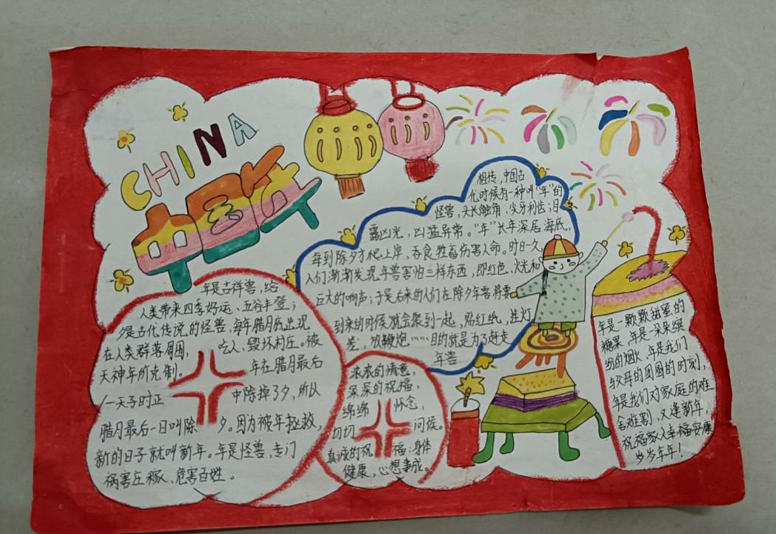 CHINA
中国年
年是吉祥兽，给
人类带来四季好运、五谷丰登；
夕是古代传说的怪兽，每年腊月底出现
在人类群落周围，吃人、毁坏村庄。被
天神年所克制，年在腊月最后
一天子时正中除掉了夕，所以
腊月最后一日叫除夕。因为被年拯救，
新的日子就叫新年。年是怪兽，专门
祸害庄稼、危害百姓。
相传，中国古
代时候有一种叫“年”的
怪兽，头长触角，尖牙利齿；目
露凶光，凶猛异常。“年”长年深居海底，
每到除夕才爬上岸，吞食牲畜伤害人命。时日一久
人们渐渐发现年兽害怕三样东西，即红色、火光和
巨大的响声；于是后来的人们在除夕年兽将要
到来的时候就会聚到一起，贴红纸，挂灯
笼，放鞭炮……目的就是为了赶走
年兽
浓浓的情意，
深深的祝福，
绵绵怀念，
切切问候。
真诚的祝福：身体
健康，心想事成。
年是一颗颗甜蜜的
糖果，年是一朵朵缤
纷的烟火，年是我们
的团圆的时刻，
年是我们对家庭的难
舍难割，又逢新年，
祝福家人幸福安康
岁岁年年！